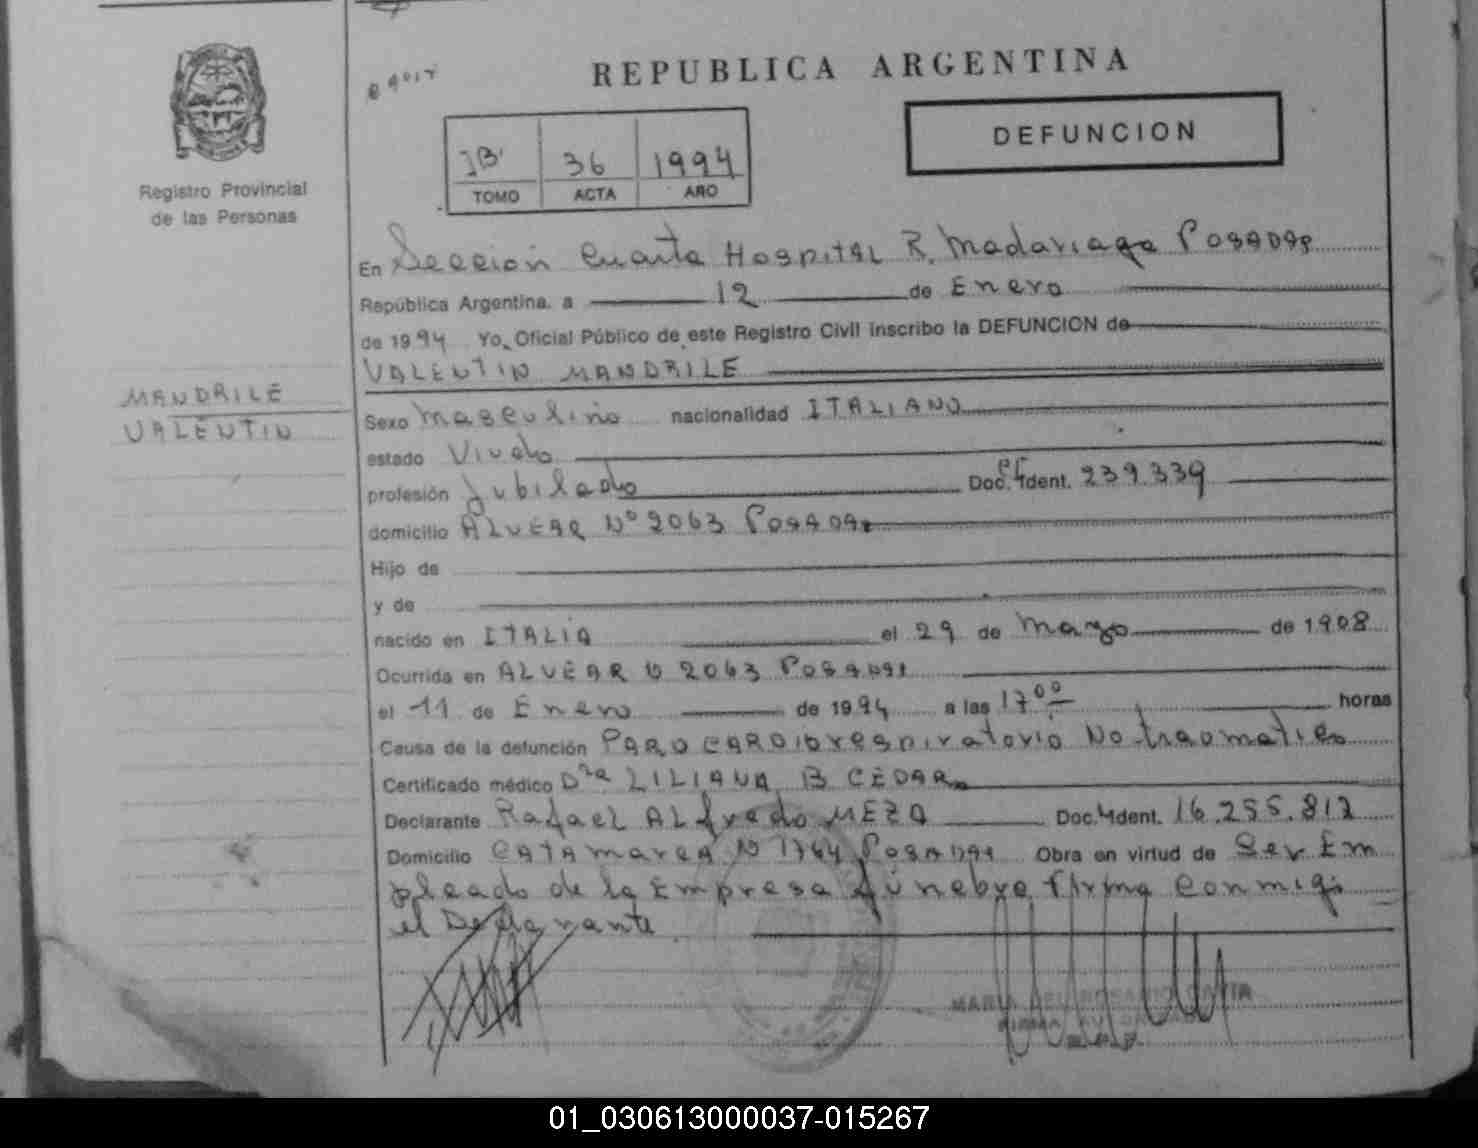 REPUBLICA ARGENTINA
DEFUNCION
36 1994
TOMO ACTA AÑO
Registro Provincial
de las Personas
En Sección Cuarta Hospital R. Madariaga Posadas
República Argentina, a 12 de Enero
de 1994 Yo, Oficial Público de este Registro Civil inscribo la DEFUNCION de
VALENTIN MANDRILE
MANDRILE
VALENTIN
Sexo Masculino nacionalidad ITALIANO
estado Viudo
profesión Jubilado Doc. Ident. 239.339
domicilio ALVEAR Nº 2063 Posadas
Hijo de
y de
nacido en ITALIA el 29 de Marzo de 1908
Ocurrida en ALVEAR N 2063 Posadas
el 11 de Enero de 1994 a las 17 00 horas
Causa de la defunción PARO CARDIOrespiratorio No traumatico
Certificado médico Dra LILIANA B CEDAR
Declarante Rafael ALfredo MEZA Doc. Ident. 16.255.812
Domicilio CATAMARCA N 1764 Posadas Obra en virtud de Ser Em
pleado de la Empresa fúnebre firma conmigo
el Declarante
01_030613000037-015267